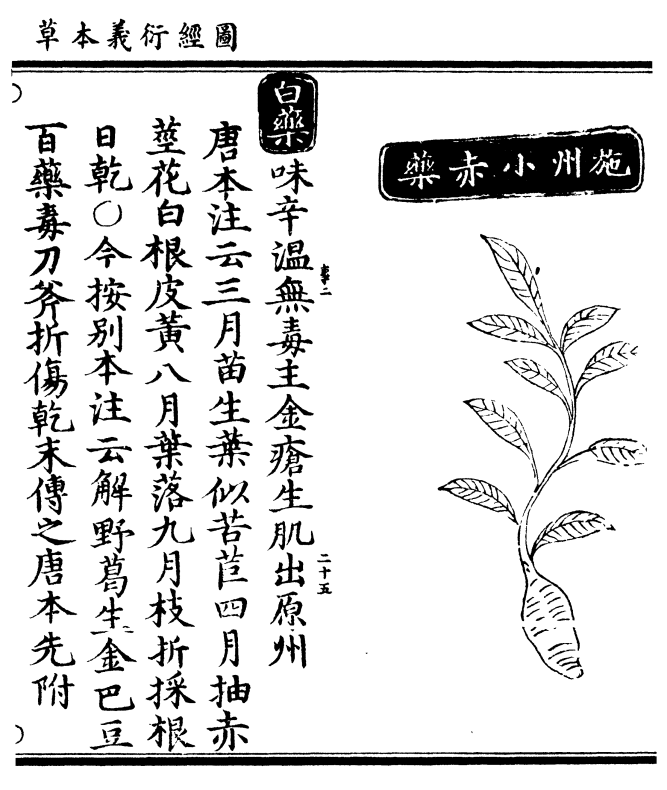 圖經衍義本草
施州小赤藥
白藥
味辛溫無毒主金瘡生肌出原州
唐本注云三月苗生葉似苦苣四月抽赤
莖花白根皮黃八月葉落九月枝折採根
日乾○今按別本注云解野葛生金巴豆
百藥毒刀斧折傷乾末傅之唐本先附
二十五